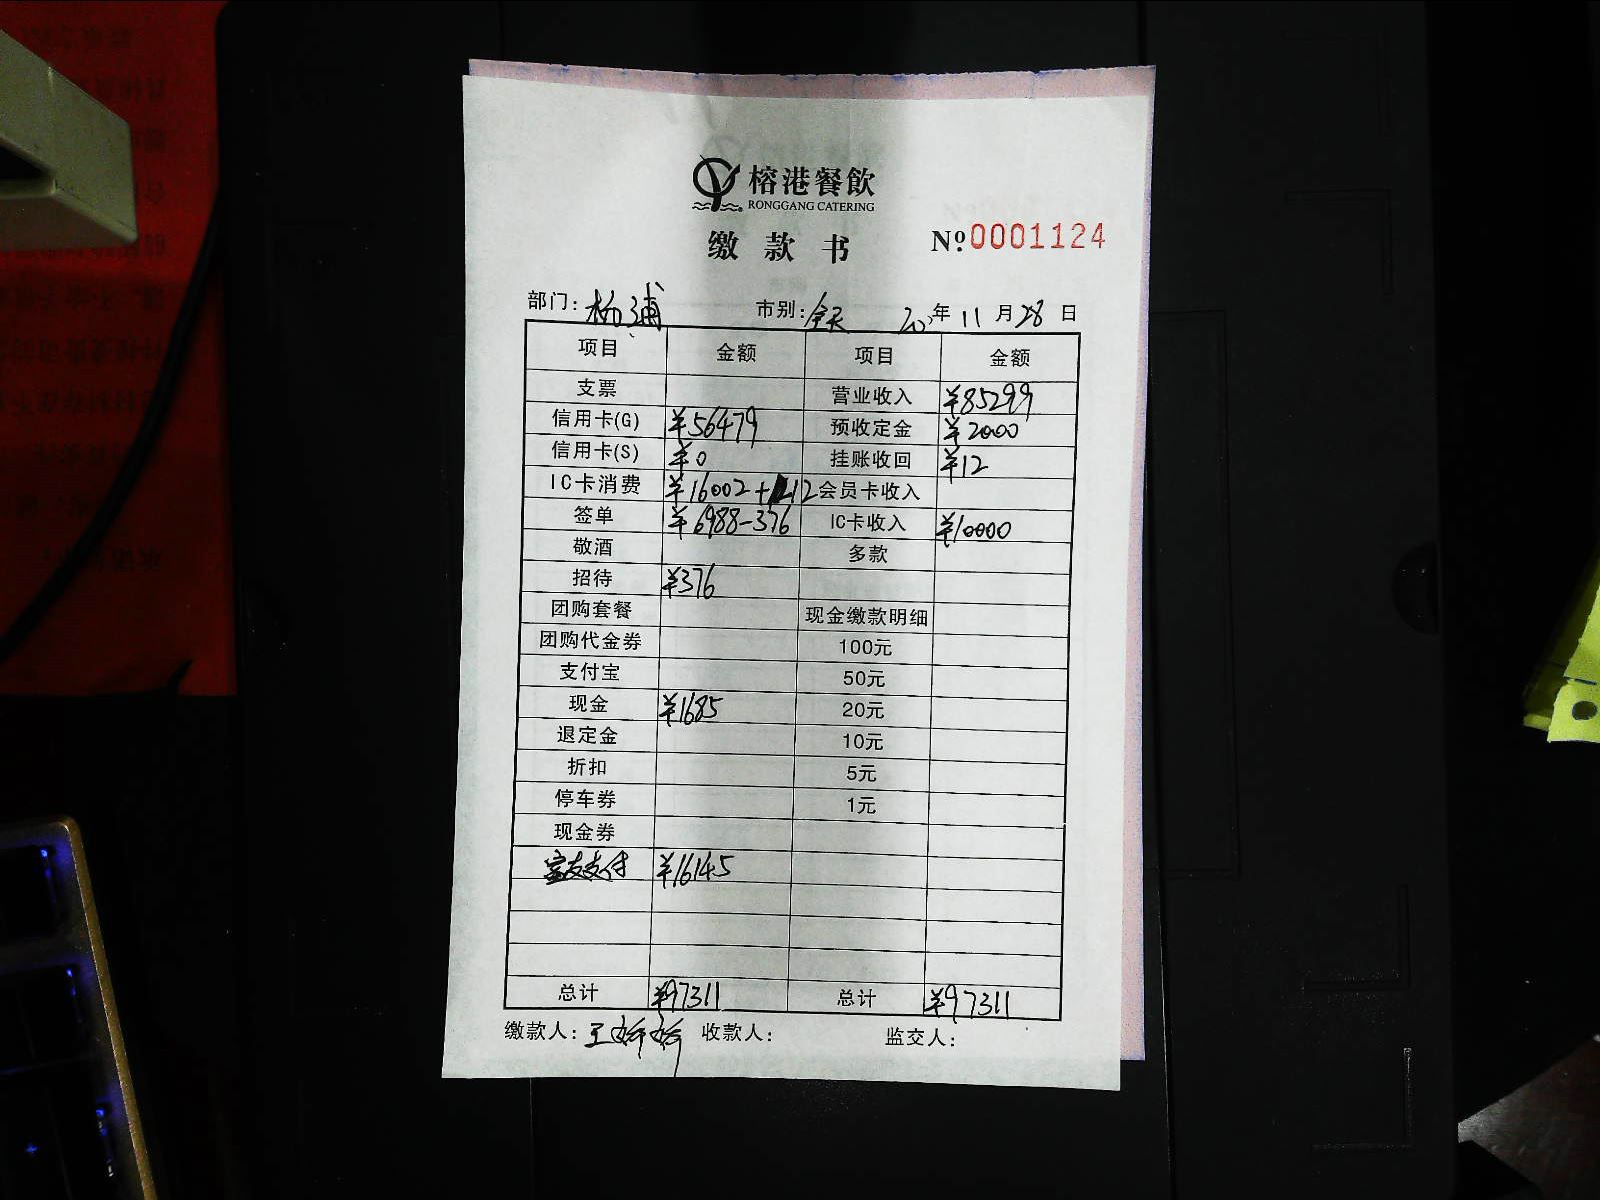 榕港餐飲
RONGGANG CATERING
缴款书
№0001124
部门: 杨浦 市别: 全天 20 年 11 月 28 日
项目 金额 项目 金额
支票 营业收入 ¥85299
信用卡(G) ¥56479 预收定金 ¥2000
信用卡(S) ¥0 挂账收回 ¥12
IC卡消费 ¥16002+12 会员卡收入
签单 ¥6988-376 IC卡收入 ¥10000
敬酒 多款
招待 ¥376
团购套餐 现金缴款明细
团购代金券 100元
支付宝 50元
现金 ¥1685 20元
退定金 10元
折扣 5元
停车券 1元
现金券
支付 ¥16145
总计 ¥97311 总计 ¥97311
缴款人: 王婷婷 收款人: 监交人: